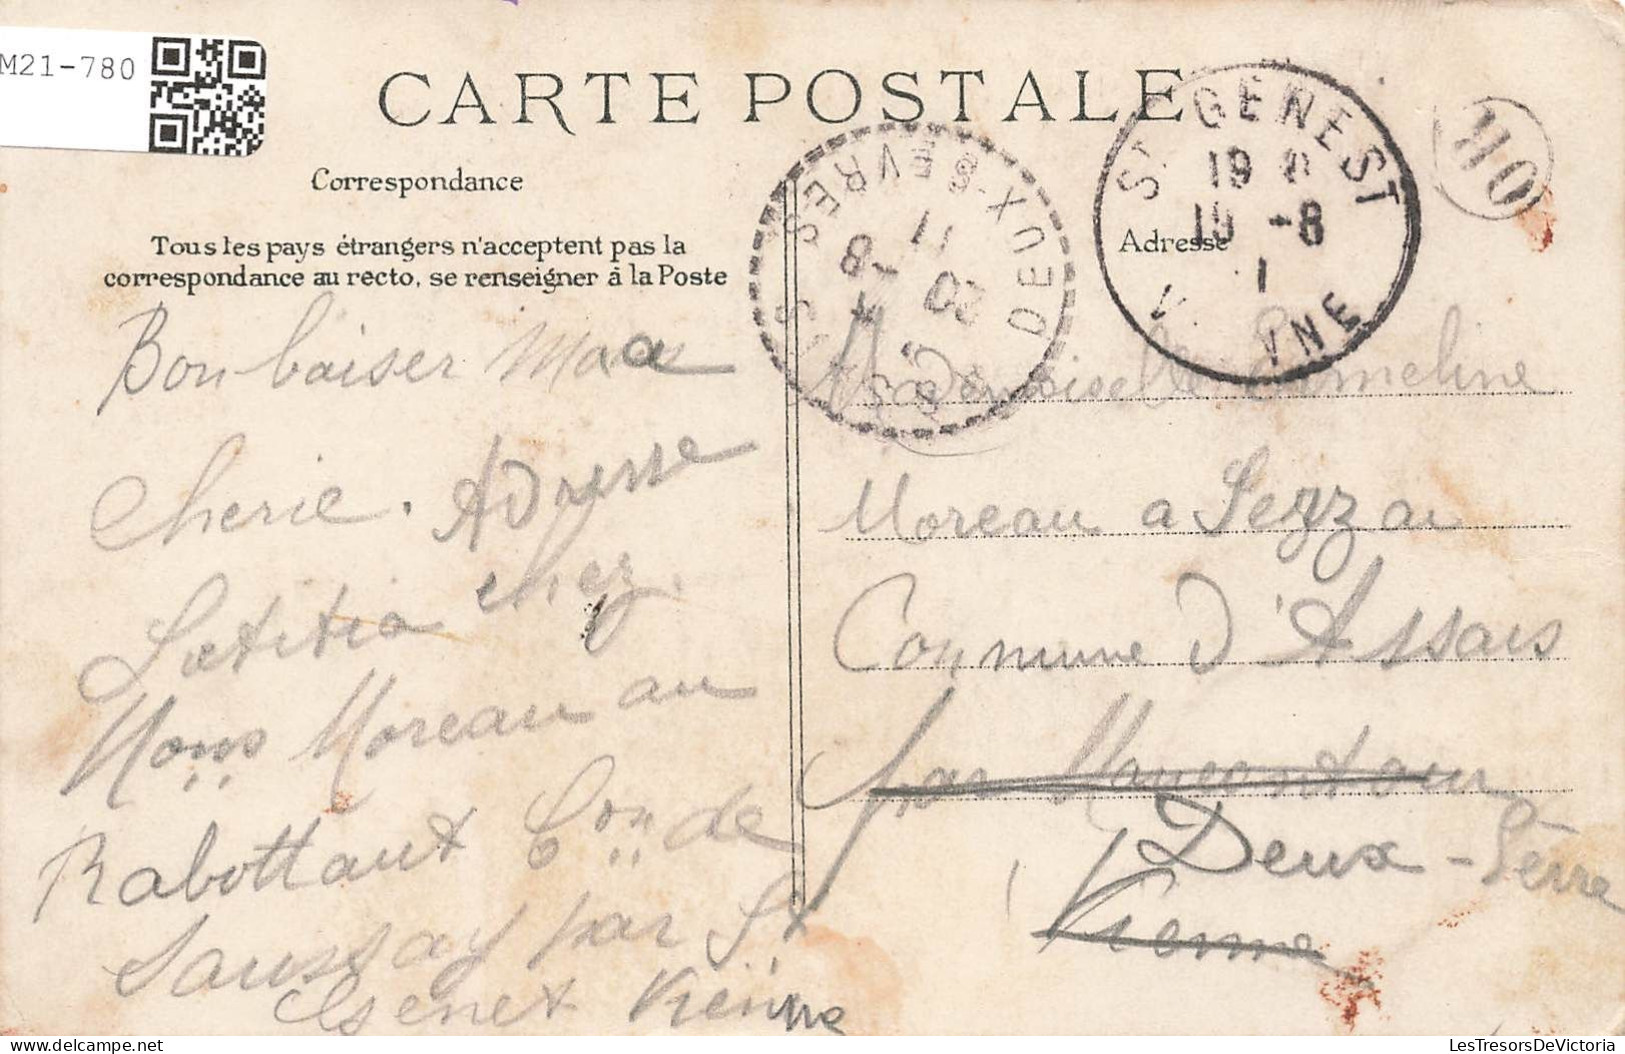 M21-780
CARTE POSTALE
Correspondance
Tous les pays étrangers n'acceptent pas la
correspondance au recto, se renseigner à la Poste
Bon baiser Maa
Cherie. Adresse
Lætitia chez
Mons Moreau au
Rabottaut Con de
Saussay par St
Genet Vienne
Adresse
Mademoiselle Emeline
Moreau a Sezzai
Commune d'Assais
par Moncontour
Deux-Sèrre
Vienne
ST GENEST
19
19 -8
1
V NNE
DEUX-SEVRES
11
20 -8
110
LesTresorsDeVictoria